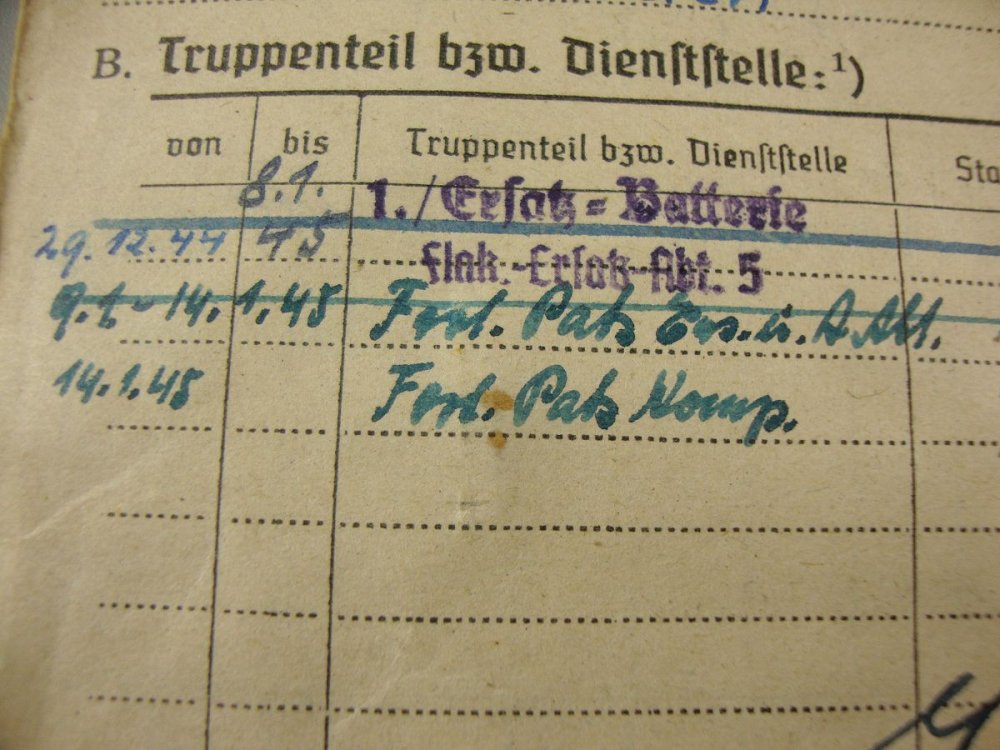 B. Truppenteil bzw. Dienststelle:¹)
von bis Truppenteil bzw. Dienststelle Sta
8.1. 1./Ersatz=Batterie
29.12.44 45 Flak.-Ersatz-Abt. 5
9.1.-14.1.45 Ers. u. A. Abt.
14.1.45 Komp.